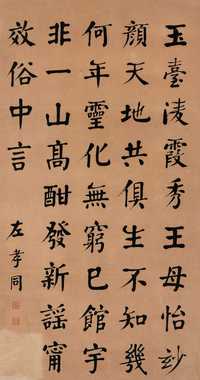 玉臺凌霞秀王母怡玅
顏天地共俱生不知幾
何年靈化無窮巳館宇
非一山高酣發新謠甯
效俗中言
左孝同